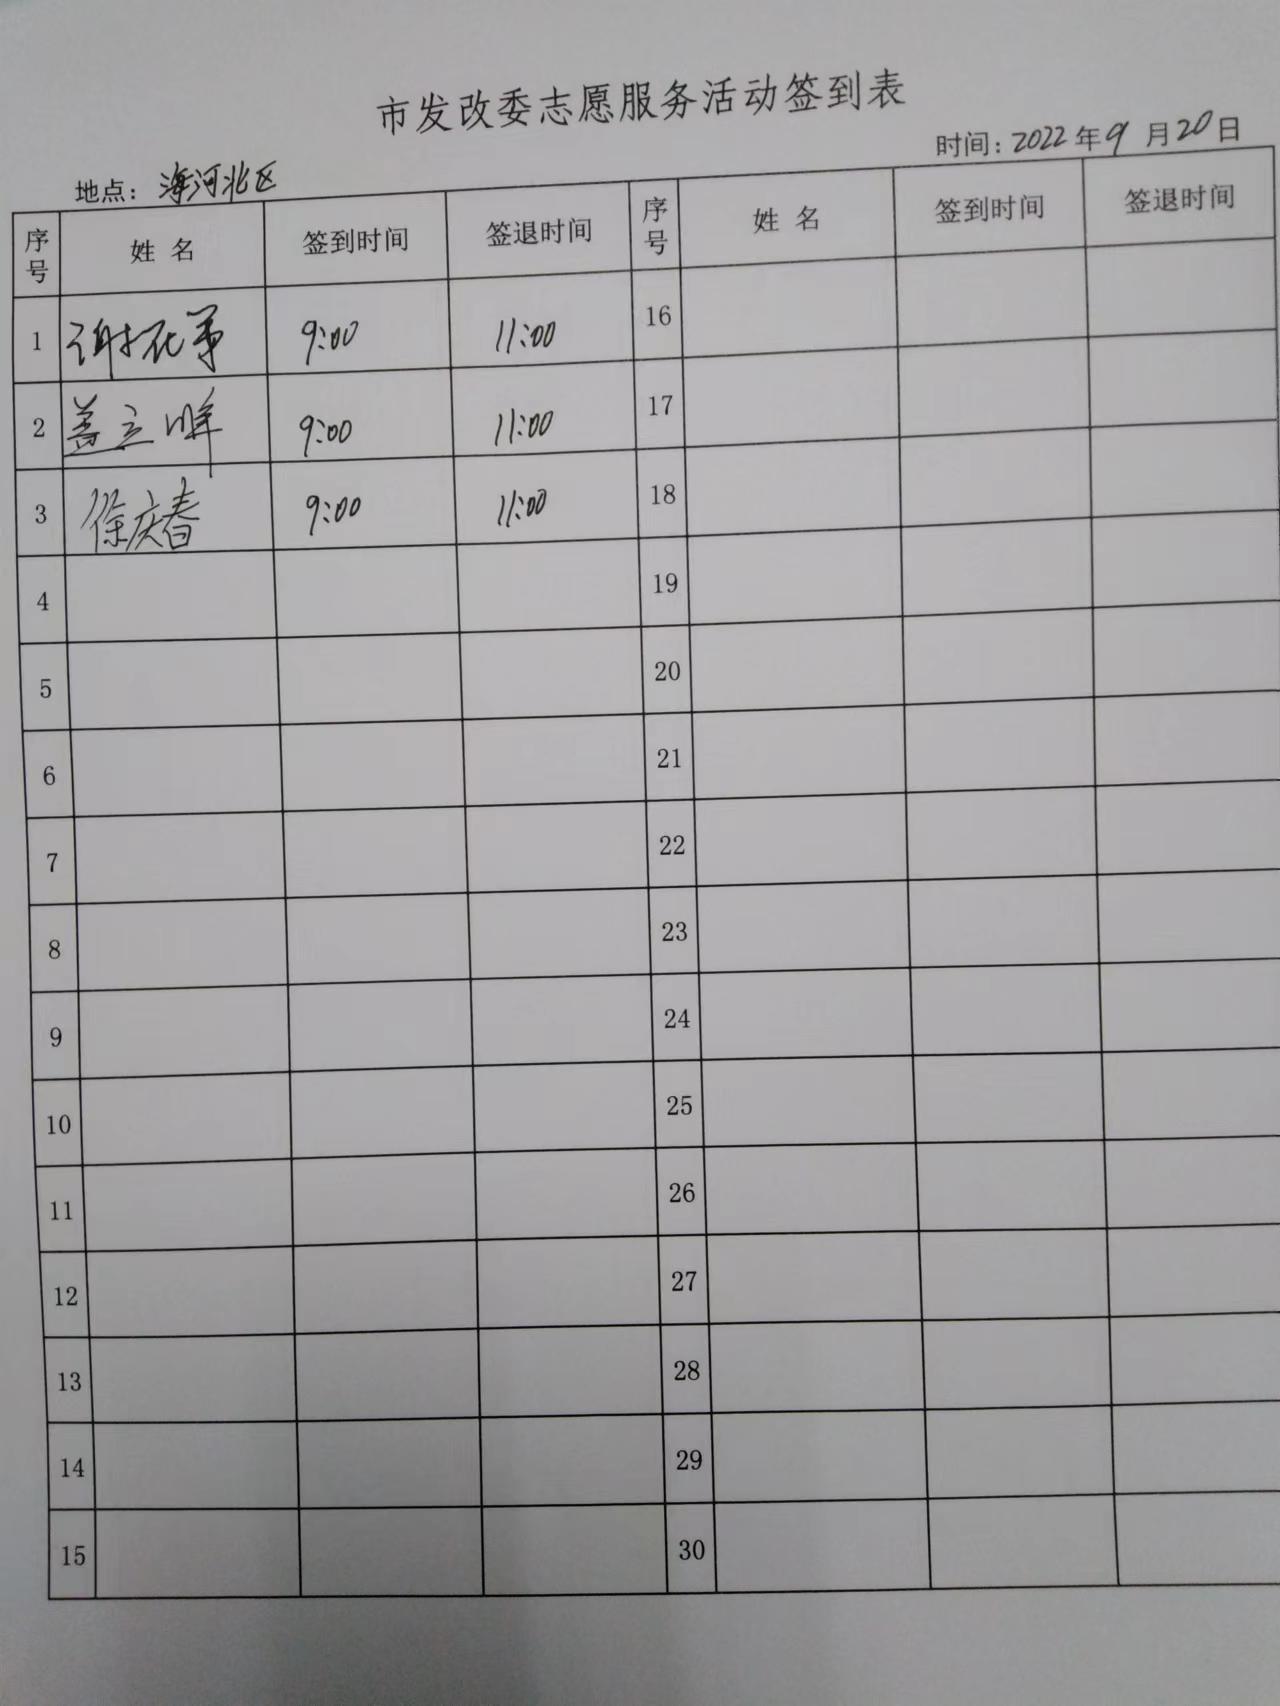 市发改委志愿服务活动签到表
地点：海河北区 时间：2022年9月20日
序号 姓名 签到时间 签退时间 序号 姓名 签到时间 签退时间
1 谢花第 9:00 11:00 16
2 盖立峰 9:00 11:00 17
3 徐庆春 9:00 11:00 18
4 19
5 20
6 21
7 22
8 23
9 24
10 25
11 26
12 27
13 28
14 29
15 30